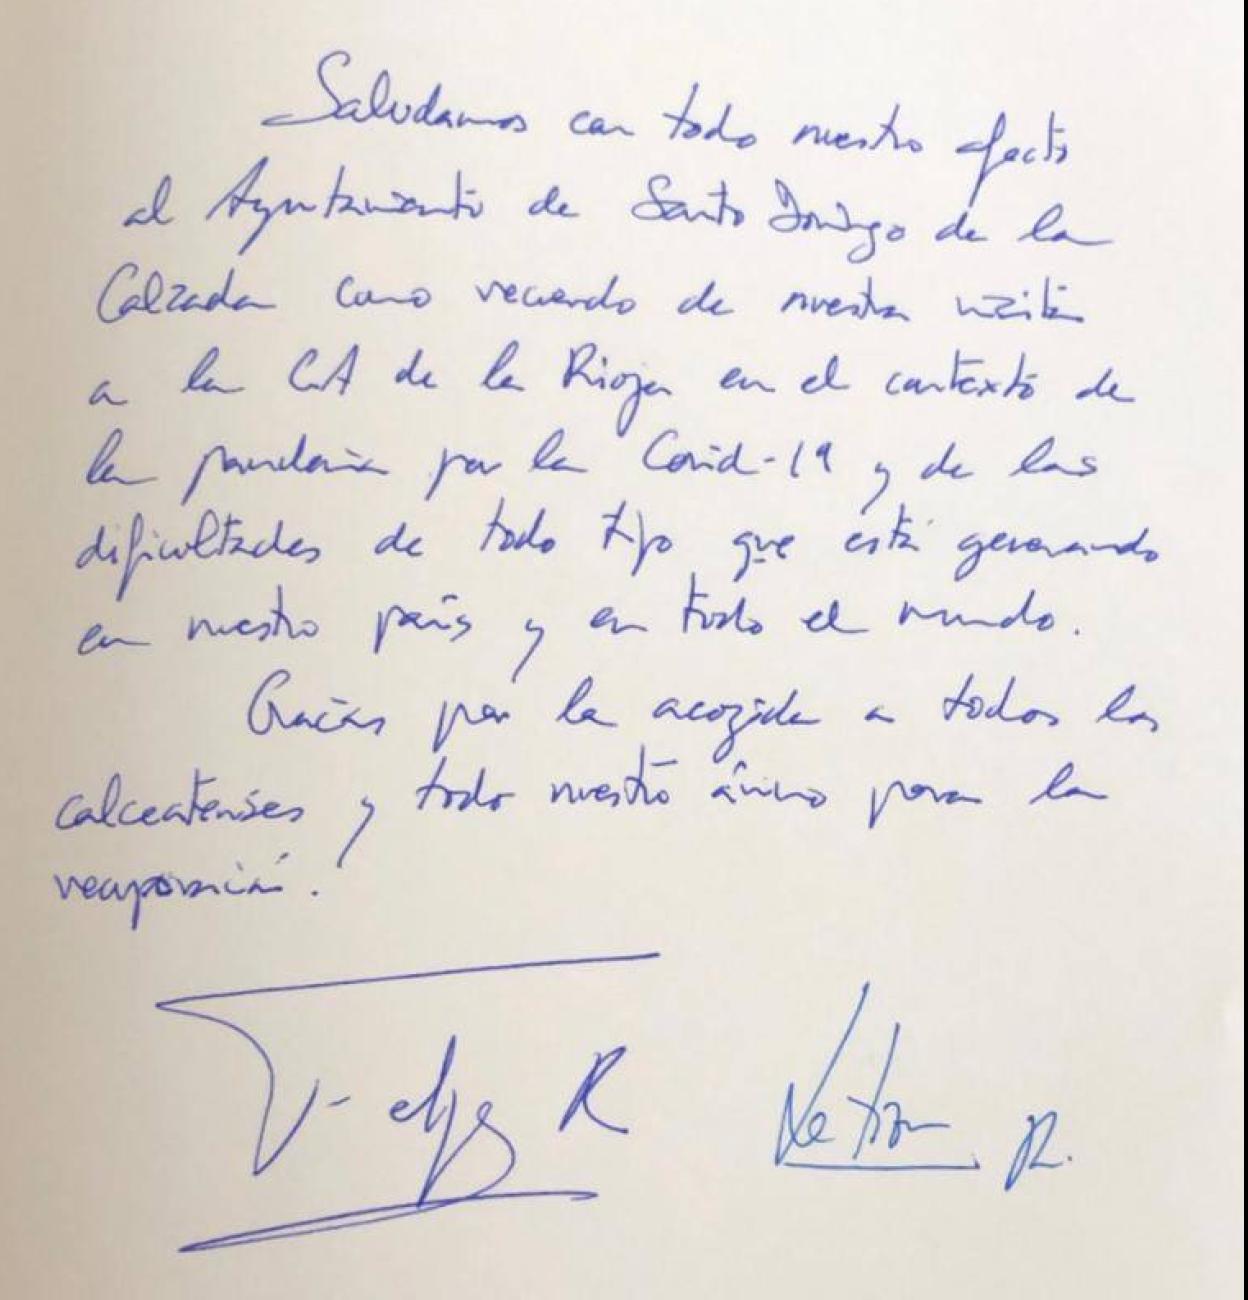 Saludamos con todo nuestro afecto
al Ayuntamiento de Santo Domingo de la
Calzada como recuerdo de nuestra visita
a la CA de la Rioja en el contexto de
la pandemia por la Covid-19 y de las
dificultades de todo tipo que está generando
en nuestro país y en todo el mundo.
Gracias por la acogida a todos los
calceatenses y todo nuestro ánimo para la
recuperación.
Felipe R Letizia R.